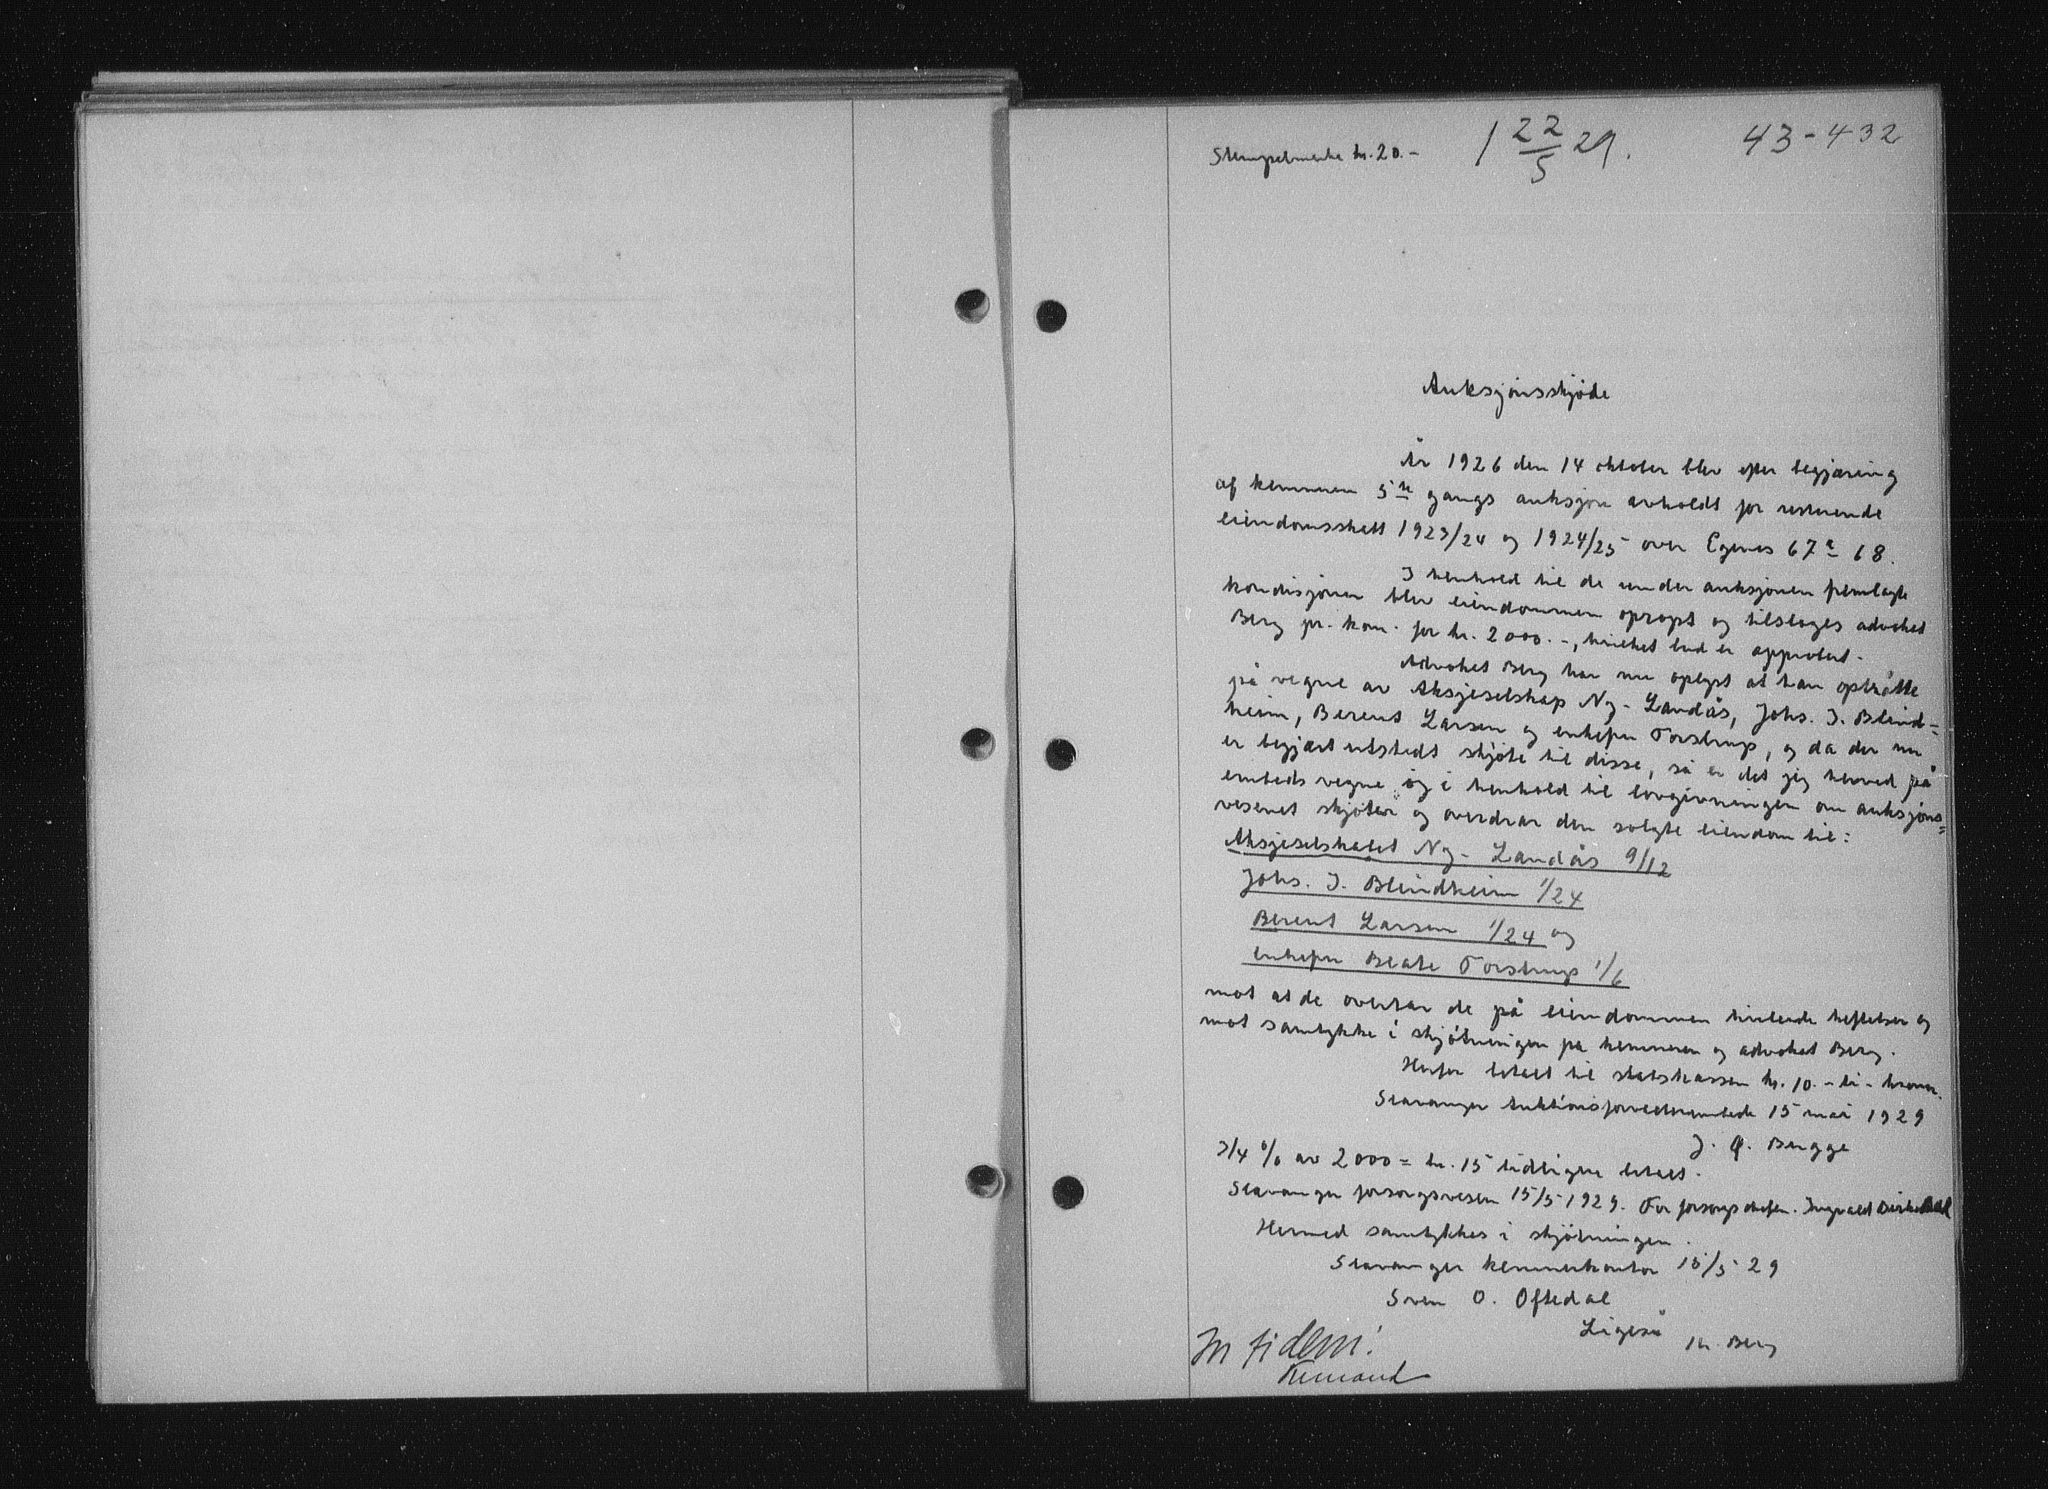 Stempelmerke kr. 20.-
1 22/5 29.
43-432
Auksjonsskjøde
År 1926 den 14 oktober blev efter begjæring
af kemneren 5te gangs auksjon avholdt for resterende
eiendomsskatt 1923/24 og 1924/25 over Egenes 67a 68.
I henhold til de under auksjonen fremlagte
kondisjoner blev eiendommen opropt og tilslages advokat
Berg pr. kom. for kr. 2000.-, hvilket bud er approbert.
Advokat Berg har nu oplyst at han optrådte
på vegne av Aksjeselskap Ny-Landås, Johs. J. Blind-
heim, Berent Larsen og enkefru Torstrup, og da der nu
er begjært utstedt skjøte til disse, så er det jeg herved på
embeds vegne og i henhold til lovgivningen om auksjons-
vesenet skjøter og overdrar den solgte eiendom til:
Aksjeselskabet Ny-Landås 9/12
Johs. J. Blindheim 1/24
Berent Larsen 1/24 og
enkefru Beate Torstrup 1/6
mot at de overtar de på eiendommen hvilende heftelser og
mot samtykke i skjøtningen fra kemneren og advokat Berg.
Herfor betalt til statskassen kr. 10.- ti - kroner.
Stavanger Auktionsforvalterembede 15 mai 1929
J. Q. Bugge
3/4 % av 2000 = kr. 15 tidligere betalt.
Stavanger forsorgsvesen 15/5 1929. For forsorgschefen. Ingvald Birkedal
Hermed samtykkes i skjøtningen.
Stavanger kemnerkontor 15/5 29
Sven O. Oftedal
Ligeså
Kr. Berg
In fidem!